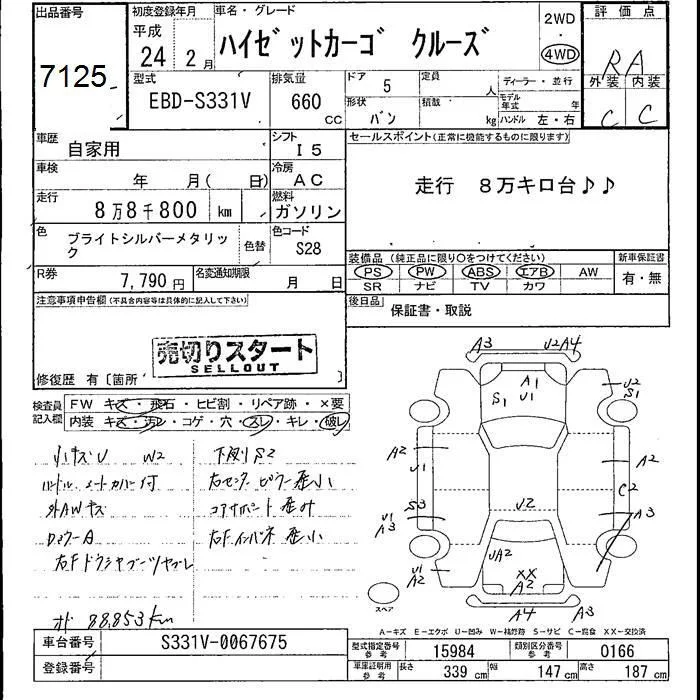 出品番号 初度登録年月 車名・グレード 2WD 評価点
7125 平成 24 2月 ハイゼットカーゴ クルーズ 4WD RA
外装 内装
C C
型式 排気量 ドア 5 定員 人 ディーラー・並行
EBD-S331V 660 CC 形状 バン 積載 kg モデル年式 年 ハンドル 左・右
車歴 自家用 シフト I5 セールスポイント(正常に機能するものに限ります)
車検 年 月( 日) 冷房 AC 走行 8万キロ台♪♪
走行 8万8千800 km 燃料 ガソリン
色 ブライトシルバーメタリック 色替 色コード S28
装備品 (純正品に限り○をつけてください) 新車保証書
PS PW ABS エアB AW 有・無
SR ナビ TV カワ
R券 7,790円 名変通知期限 月 日
後日品 保証書・取説
注意事項申告欄(不具合内容等は具体的に記入して下さい)
売切りスタート
SELLOUT
修復歴 有〔箇所
検査員記入欄 FW キズ・飛石・ヒビ割・リペア跡・×要
内装 キズ・汚レ・コゲ・穴・スレ・キレ・破レ
小キズU W2 下廻りS2
ハンドル、シートカバー付 右センターピラー歪小
外AWキズ コアサポート歪み
DミラーA 右Fインパネ歪小
右Fドラシャブーツヤブレ
オド 88,853km
A3 U2A4
A1 U1 S1
U2 S1
A2 U1
A2
C2
S3 U2
U1 A3
A3
UA2
U1 A2
XX A2
A4 A3
スペア
A-キズ E-エクボ U-凹み W-補修跡 S-サビ C-腐食 XX-交換済
車台番号 S331V-0067675 型式指定番号 参考 15984 類別区分番号 参考 0166
登録番号 車庫証明用 参考 長さ 339 cm 幅 147 cm 高さ 187 cm